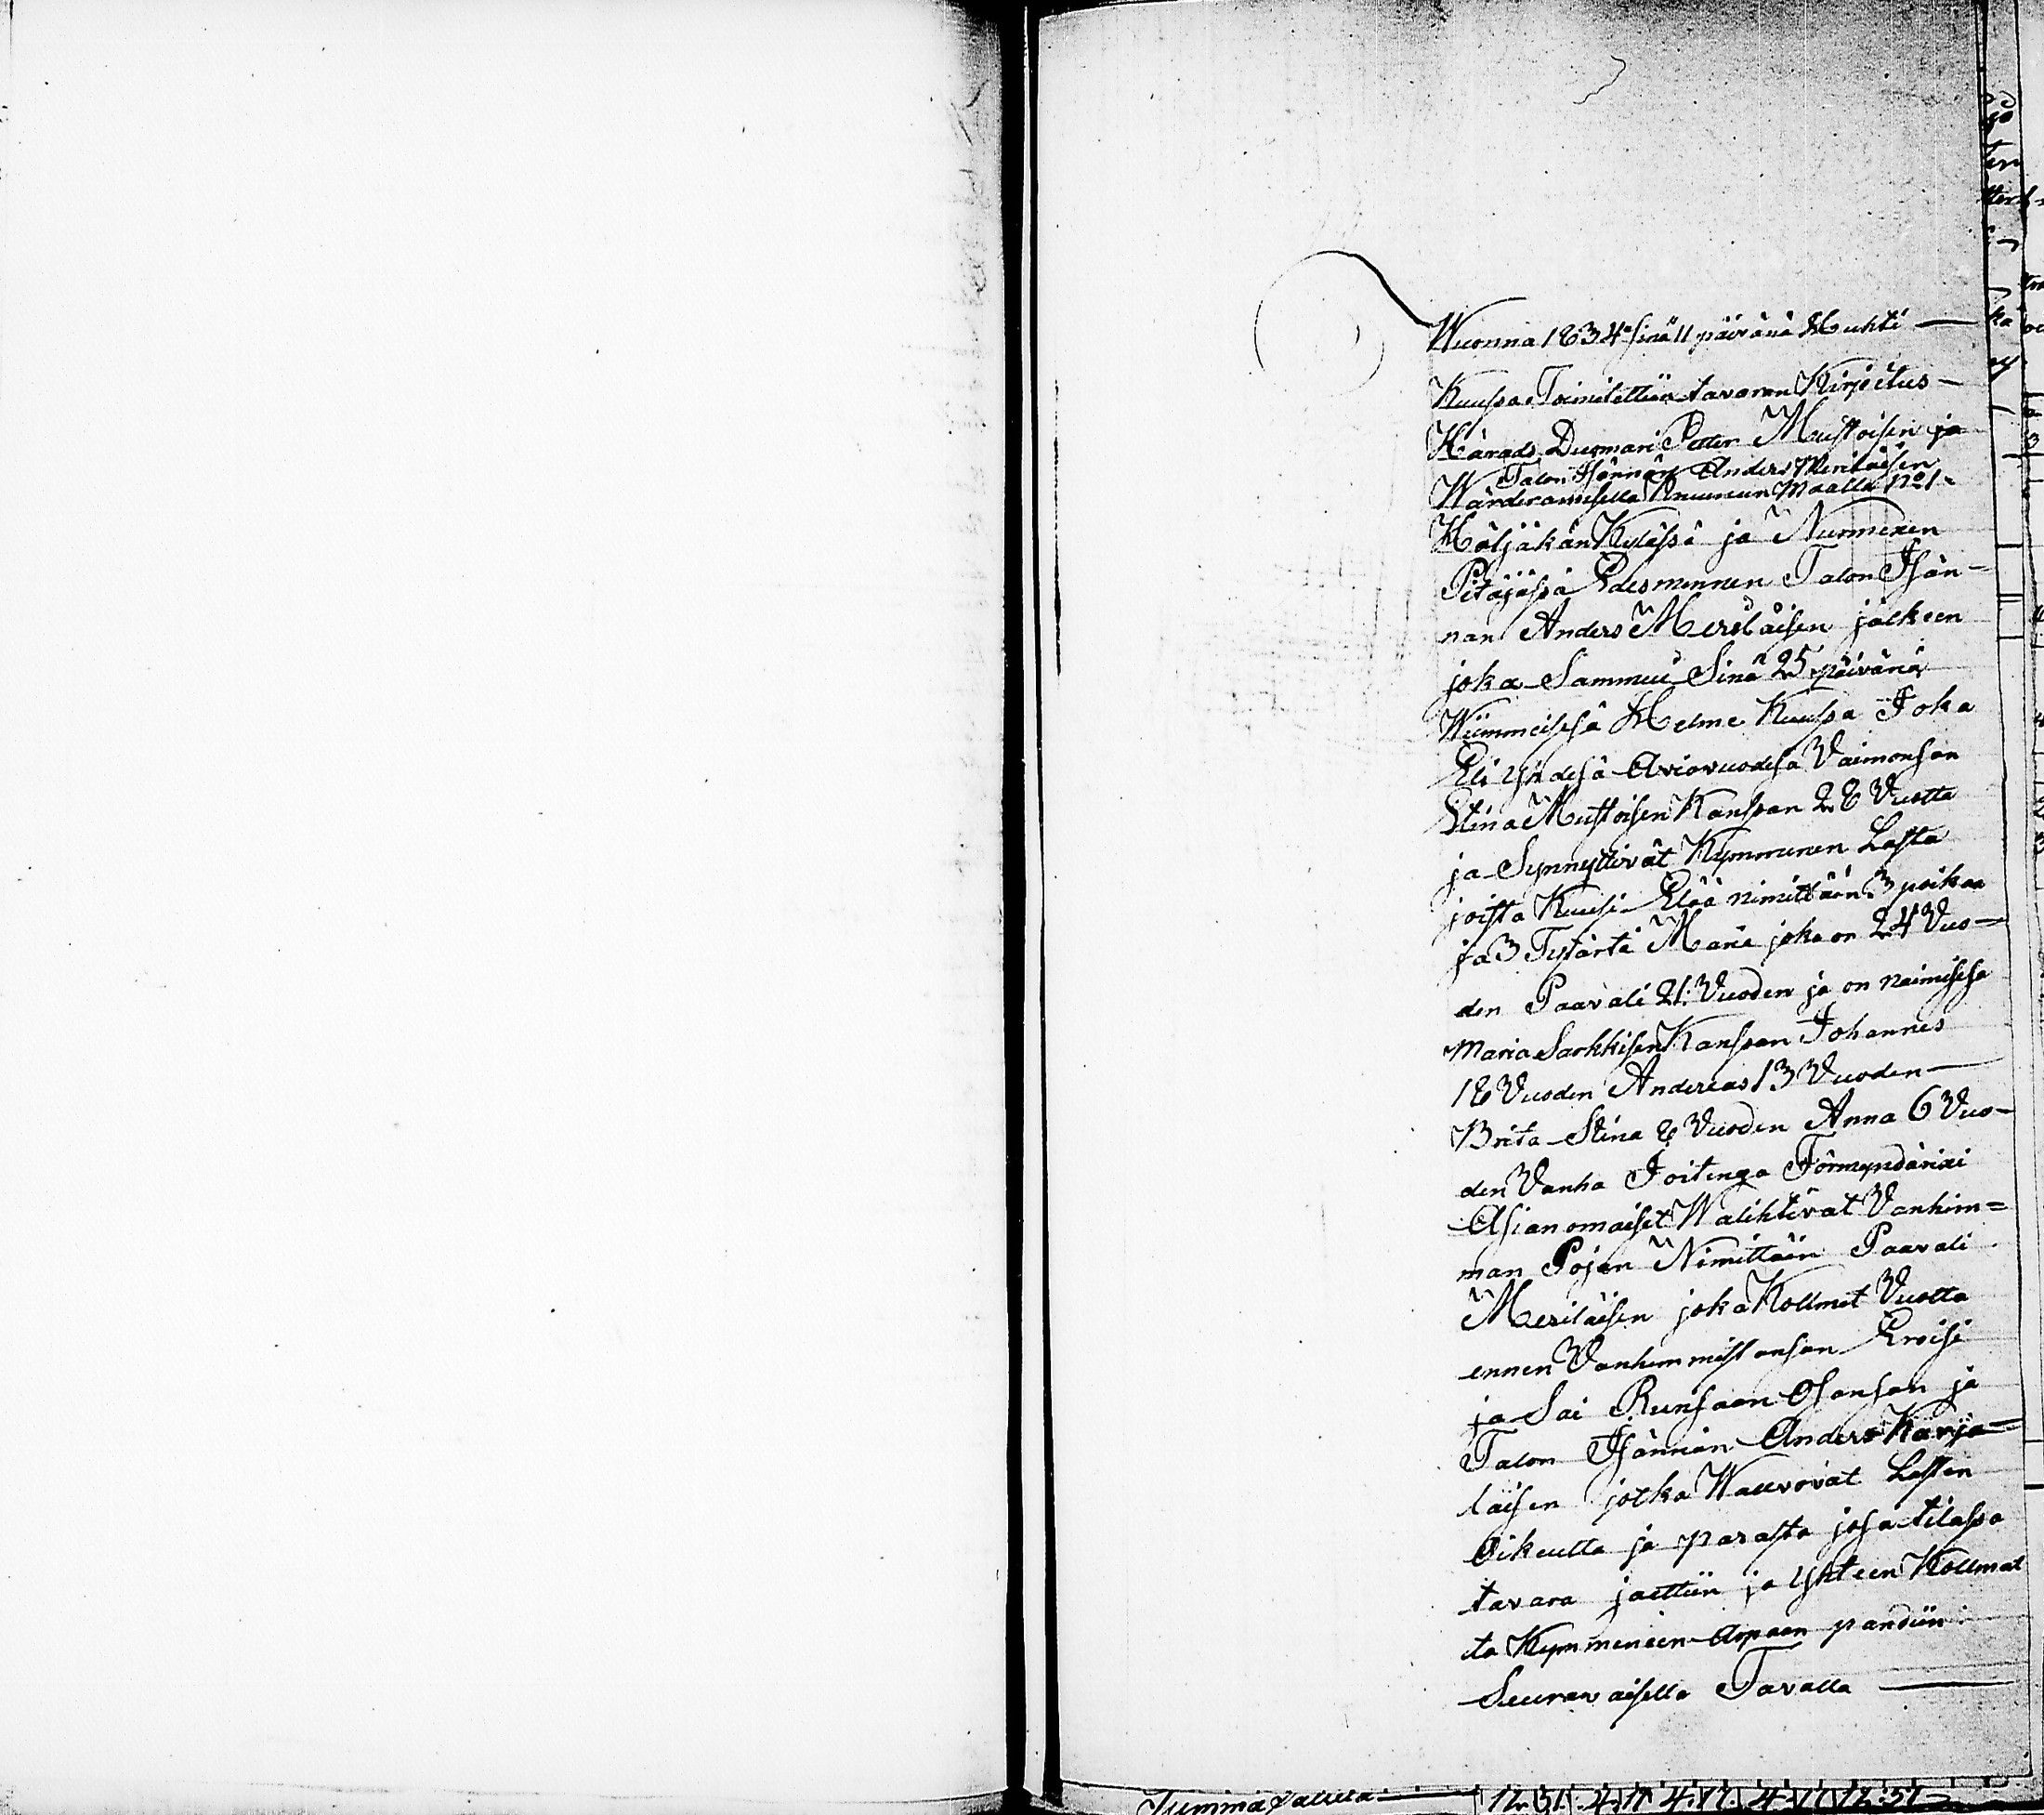 Wuonna 1834 Sinä 11 päivänä Huhti —
Kuusa Toimitettiin tavaran Kirjoitus —
Härads Duomari Petter Mustoisen ja
Talon Isännän Anders Meriläisen
Wärderamisella Kruunun Maalla No 1
Höljäkän Kyläsä ja Nurmexen
Pitäjäsä Edesmennen Talon Isän-
nan Anders Meriläisen jälkeen
joka Sammui Sinä 25 päivänä
Wiimmeisesä Helme Kuusa Joka
Eli Yhdesä Aviovuodesa Vaimonsan
Stina Mustoisen Kanssan 28 Vuotta
ja Synnyttivät Kymmenen Lasta
joista Kuusi Elää nimittäin 3 poikaa
ja 3 Tytärtä Maria joka on 24 Vuo-
den Paavali 21 Vuoden ja on naimisesa
Maria Sarkkisen Kanssan Johannes
18 Vuoden Andereas 13 Vuoden —
Brita Stina 8 Vuoden Anna 6 Vuo-
den Vanha Joitenga Förmyndärixi
Asianomaiset Walihtivat Vanhim=
man Pojan Nimittäin Paavali
Meriläisen joka Kollmet Vuotta
ennen Vanhemmistansan Eroisi
ja Sai Runsaan Osansan ja
Talon Isännän Anders Karja-
läisen jotka Wallvovat Lasten
Oikeutta ja parasta josa tilassa
tavara jaettiin ja Yhteen Kollmat
ta Kymmeneen Arpaan pandiin
Seuravaisella Tavalla —
Summa
12 51 4 17 4 17 4 17 12:51